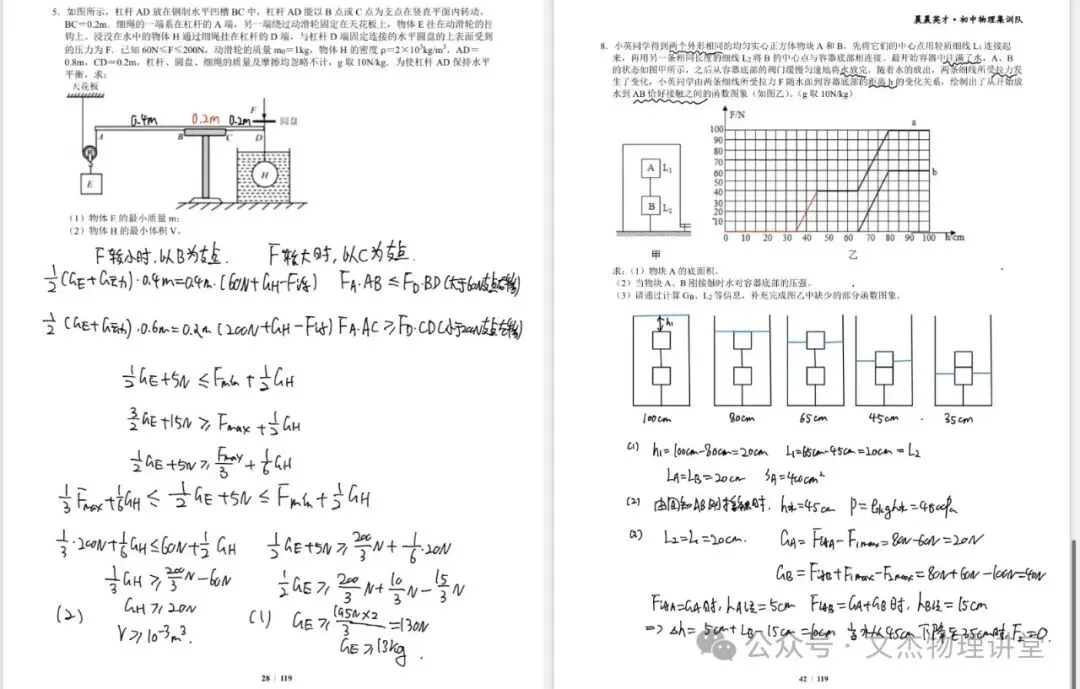 5. 如图所示，杠杆 AD 放在钢制水平凹槽 BC 中，杠杆 AD 能以 B 点或 C 点为支点在竖直平面内转动，
BC=0.2m．细绳的一端系在杠杆的 A 端，另一端绕过动滑轮固定在天花板上，物体 E 挂在动滑轮的挂
钩上．浸没在水中的物体 H 通过细绳挂在杠杆的 D 端，与杠杆 D 端固定连接的水平圆盘的上表面受到
的压力为 F．已知 60N≤F≤200N，动滑轮的质量 m₀=1kg，物体 H 的密度 ρ=2×10³kg/m³，AD=
0.8m，CD=0.2m，杠杆、圆盘、细绳的质量及摩擦均忽略不计，g 取 10N/kg．为使杠杆 AD 保持水平
平衡，求：
天花板
0.4m 0.2m 0.2m F
圆盘
A B C D
E H
（1）物体 E 的最小质量 m；
（2）物体 H 的最小体积 V。
F较小时，以B为支点． F较大时，以C为支点．
½(GE+G动)·0.4m=0.4m·(60N+GH-F浮) FA·AB≤FD·BD(大于60N支点右移)
½(GE+G动)·0.6m=0.2m(200N+GH-F浮) FA·AC≥FD·CD(小于200N支点左移)
½GE+5N≤Fmin+½GH
3/2GE+15N≥Fmax+½GH
½GE+5N≥Fmax/3+1/6GH
1/3Fmax+1/6GH≤½GE+5N≤Fmin+½GH
1/3·200N+1/6GH≤60N+½GH ½GE+5N≥200/3N+1/6·20N
1/3GH≥200/3N-60N ½GE≥200/3N+10/3N-15/3N
(2) GH≥20N (1) GE≥195N×2/3=130N
V≥10⁻³m³. GE≥13kg.
28 / 119
晨晨英才·初中物理集训队
8. 小英同学得到两个外形相同的均匀实心正方体物块 A 和 B，先将它们的中心点用轻质细线 L₁ 连接起
来，再用另一条相同长度的细线 L₂ 将 B 的中心点与容器底部相连接。最开始容器中注满了水，A、B
的状态如图甲所示，之后从容器底部的阀门缓慢匀速地将水放完，随着水的放出，两条细线所受拉力发
生了变化，小英同学由两条细线所受拉力 F 随水面到容器底部的距离 h 的变化关系，绘制出了从开始放
水到 AB 恰好接触之间的函数图象（如图乙）。（g 取 10N/kg）
F/N
100
90
80
70
60
50
40
30
20
10
0 10 20 30 40 50 60 70 80 90 100 h/cm
a
b
A L₁
B L₂
甲 乙
求：（1）物块 A 的底面积。
（2）当物块 A、B 刚接触时水对容器底部的压强。
（3）请通过计算 GB、L₂ 等信息，补充完成图乙中缺少的部分函数图象。
h₁
100cm 80cm 65cm 45cm 35cm
(1) h₁=100cm-80cm=20cm L₁=65cm-45cm=20cm=L₂
LA=LB=20cm SA=400cm²
(2) 由图知AB刚接触时，h水=45cm P=ρ水gh水=4500Pa
(3) L₂=L₁=20cm. GA=F浮A-F1max=80N-60N=20N
GB=F浮B+F1max-F2max=80N+60N-100N=40N
F浮A=GA时，hA浸=5cm F浮B=GA+GB时，hB浸=15cm
⇒Δh=5cm+LB-15cm=10cm 45cm下降至35cm时F₂=0.
公众号·文杰物理讲堂
42 / 119